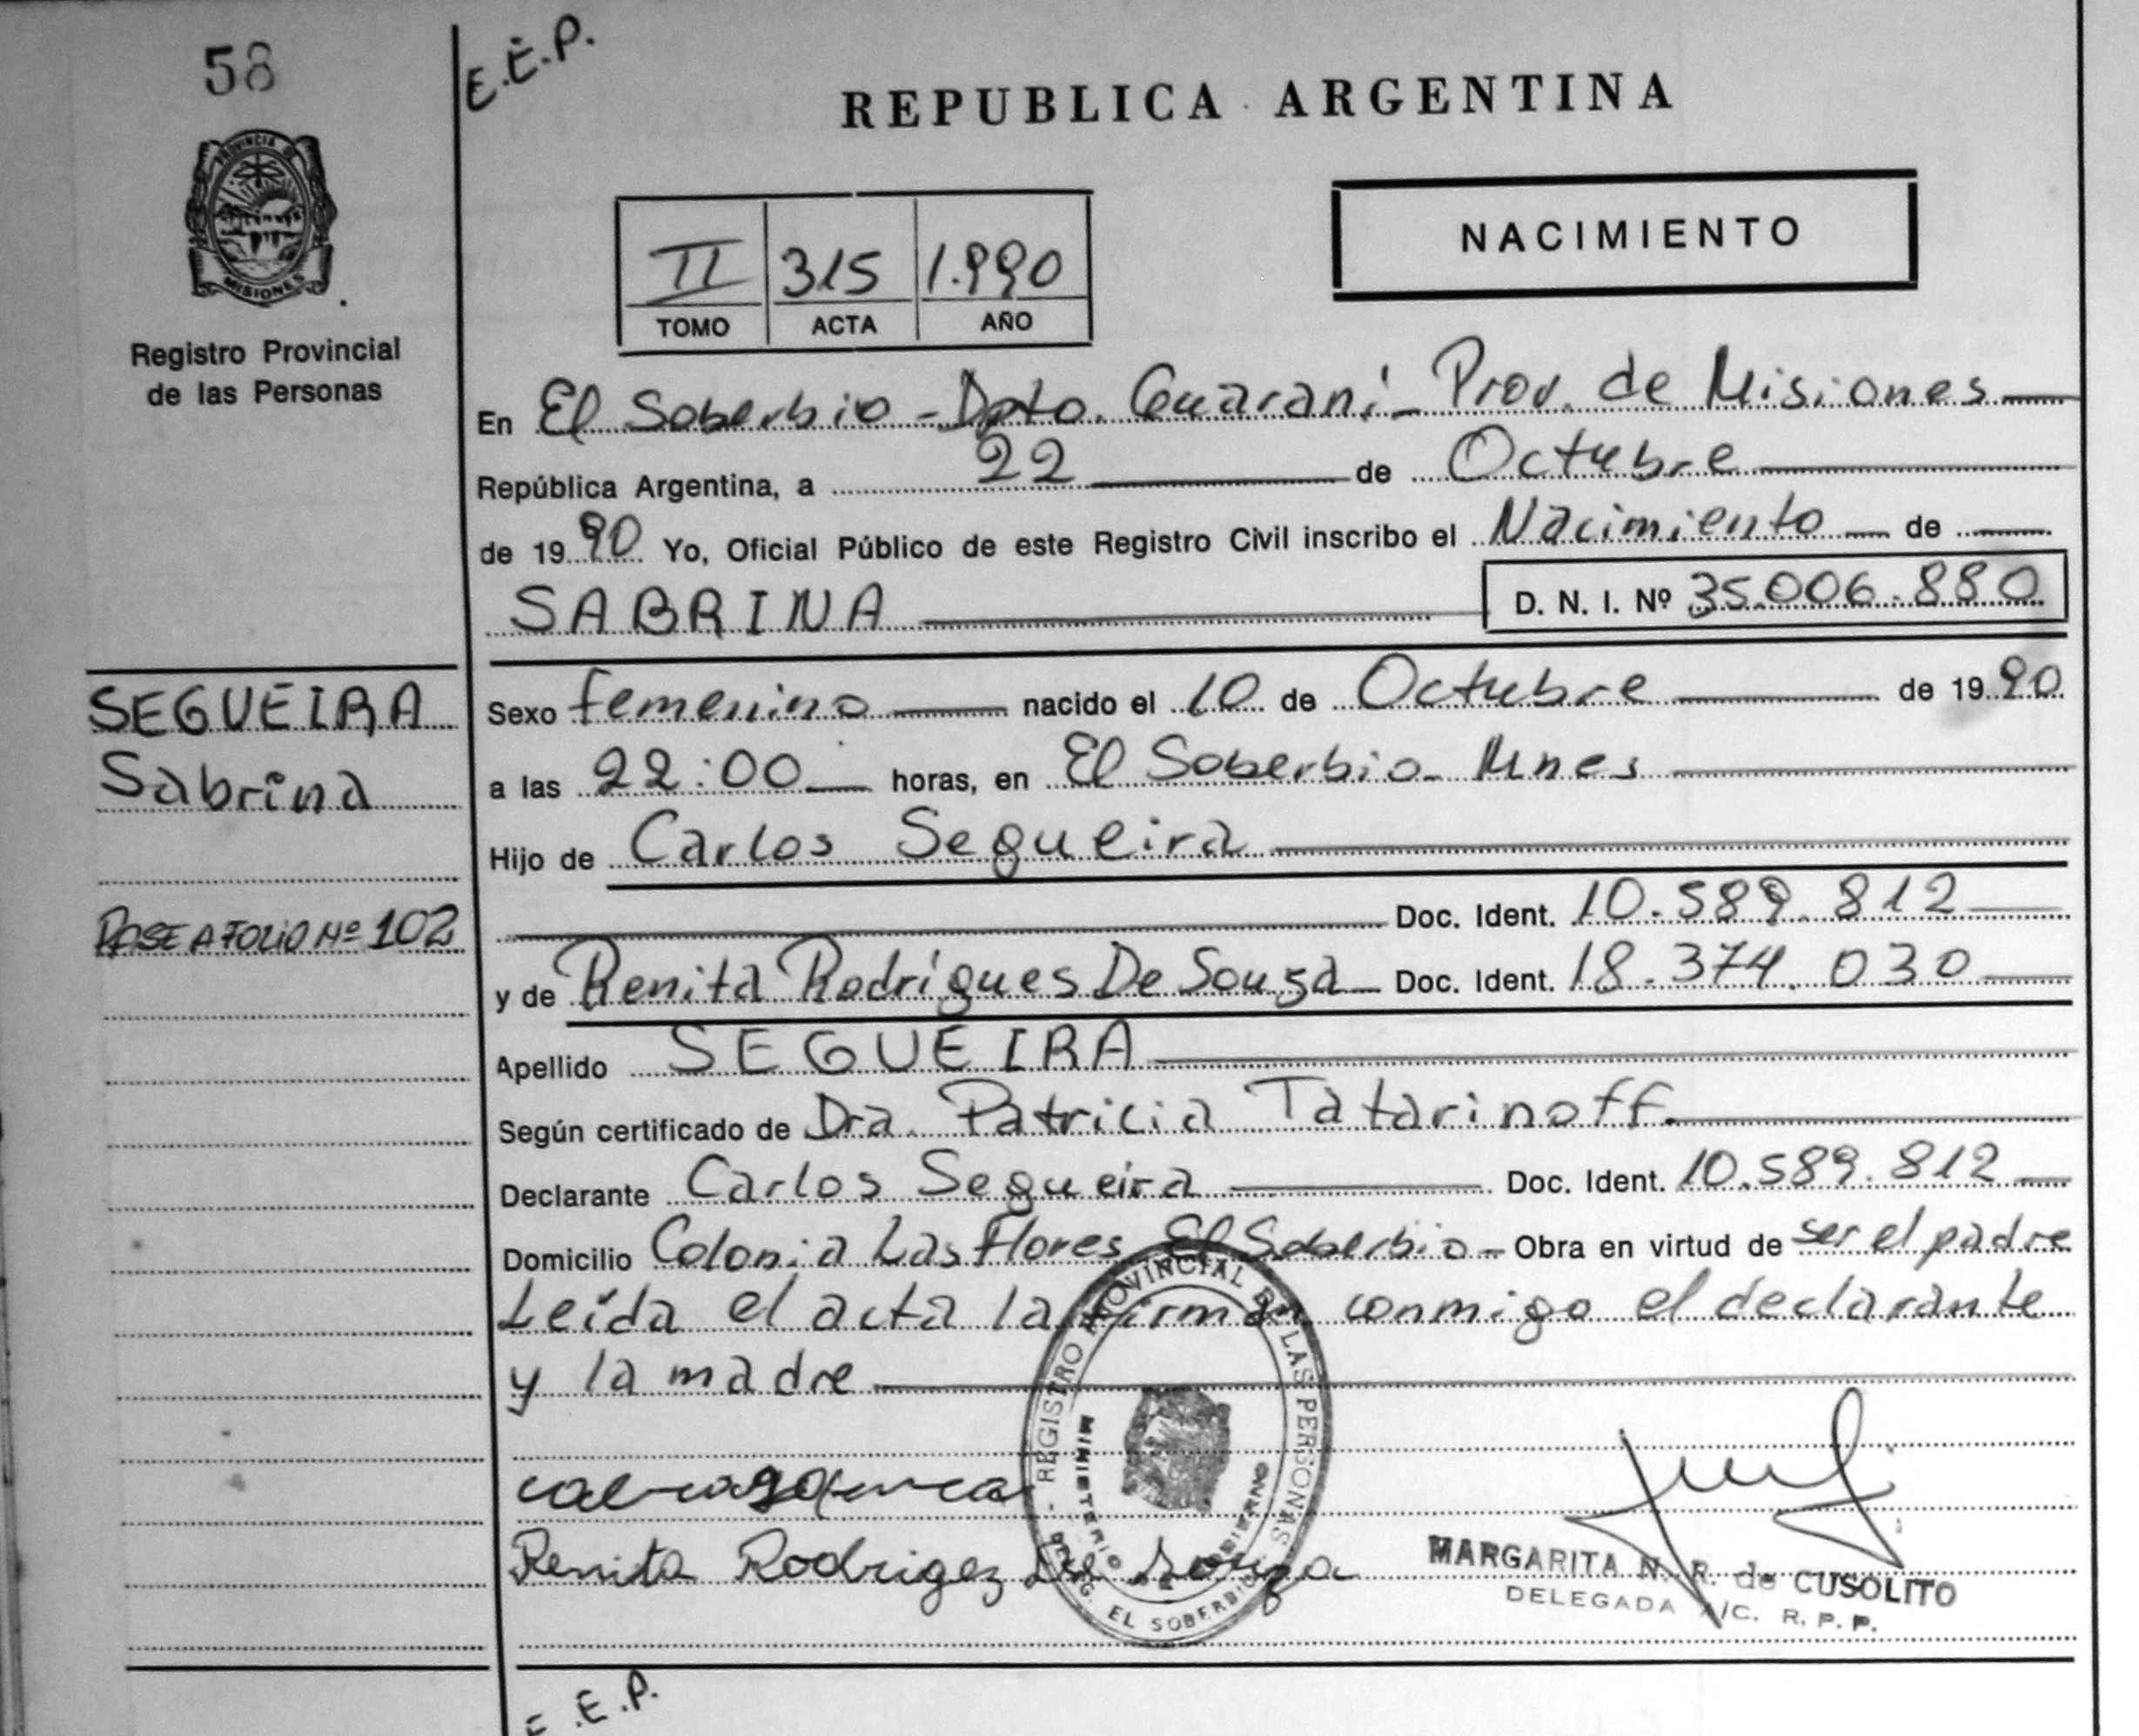 58
E.E.P.
REPUBLICA ARGENTINA
PROVINCIA DE
MISIONES
Registro Provincial
de las Personas
II 315 1.990
TOMO ACTA AÑO
NACIMIENTO
En El Soberbio - Dpto. Guaraní - Prov. de Misiones
República Argentina, a 22 de Octubre
de 1990 Yo, Oficial Público de este Registro Civil inscribo el Nacimiento de
SABRINA D. N. I. Nº 35.006.880
SEGUEIRA
Sabrina
PASE A FOLIO Nº 102
Sexo femenino nacido el 10 de Octubre de 1990
a las 22:00 horas, en El Soberbio - Mnes
Hijo de Carlos Segueira
Doc. Ident. 10.589.812
y de Renita Rodrígues De Souza Doc. Ident. 18.374.030
Apellido SEGUEIRA
Según certificado de Dra. Patricia Tatarinoff.
Declarante Carlos Segueira Doc. Ident. 10.589.812
Domicilio Colonia Las Flores El Soberbio - Obra en virtud de ser el padre
Leída el acta la firman conmigo el declarante
y la madre
REGISTRO PROVINCIAL DE LAS PERSONAS
MINISTERIO DE GOBIERNO
DELEG. EL SOBERBIO
Renita Rodrigez De Souza
MARGARITA N. R. de CUSOLITO
DELEGADA A/C. R. P. P.
E.E.P.